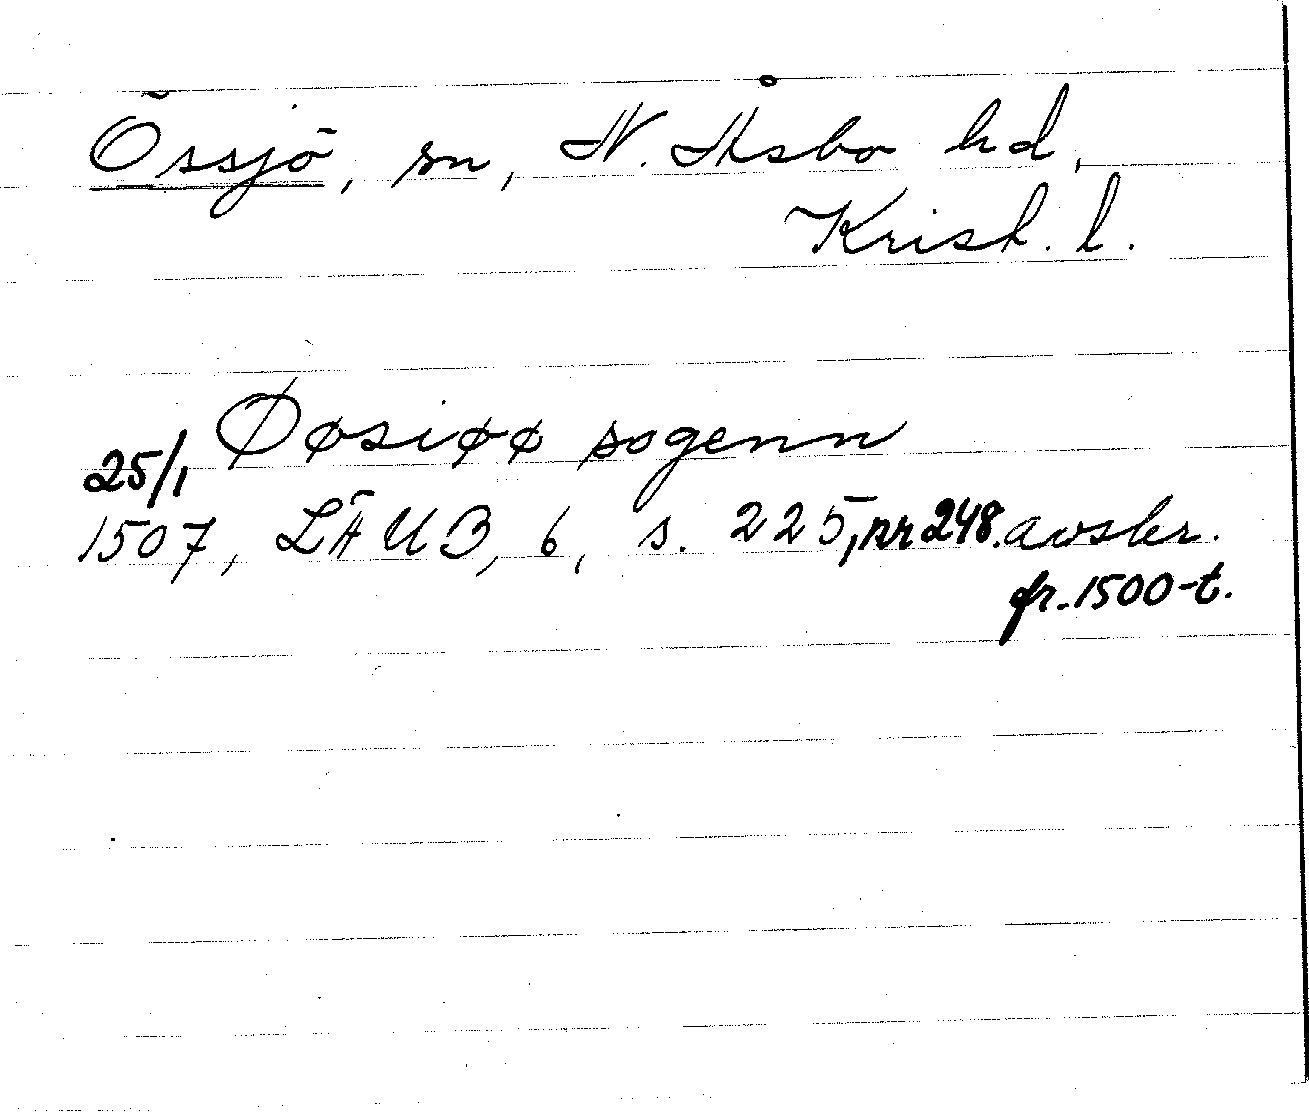 Össjö, sn, N. Åsbo hd,
Krist. l.
Øøsiøø sogenn
25/1
1507, LÄUB, 6, s. 225, nr 248. avskr.
fr. 1500-t.